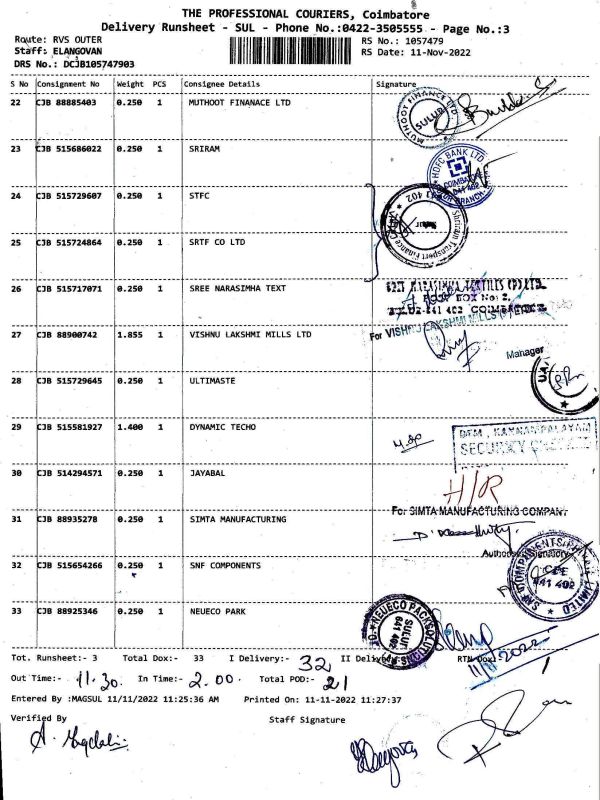 THE PROFESSIONAL COURIERS, Coimbatore
Delivery Runsheet - SUL - Phone No.:0422-3505555 - Page No.:3
Route: RVS OUTER
RS No.: 1057479
Staff: ELANGOVAN
RS Date: 11-Nov-2022
DRS No.: DCJB105747903
S No Consignment No Weight PCS Consignee Details Signature
22 CJB 88885403 0.250 1 MUTHOOT FINANACE LTD
MUTHOOT FINANCE LTD
SULUR
23 CJB 515686022 0.250 1 SRIRAM
HDFC BANK LTD
641 402
24 CJB 515729607 0.250 1 STFC
Shriram Transport Finance
25 CJB 515724864 0.250 1 SRTF CO LTD
26 CJB 515717071 0.250 1 SREE NARASIMHA TEXT
27 CJB 88900742 1.855 1 VISHNU LAKSHMI MILLS LTD
For VISHNU LAKSHMI MILLS
Manager
28 CJB 515729645 0.250 1 ULTIMASTE
29 CJB 515581927 1.400 1 DYNAMIC TECHO
SECURITY
30 CJB 514294571 0.250 1 JAYABAL
H/R
31 CJB 88935278 0.250 1 SIMTA MANUFACTURING
For SIMTA MANUFACTURING COMPANY
Authorised Signatory
32 CJB 515654266 0.250 1 SNF COMPONENTS
641 402
33 CJB 88925346 0.250 1 NEUECO PARK
SULUR
641 402
Tot. Runsheet:- 3 Total Dox:- 33 I Delivery:- 32 II Delivery RTN Dox:- 1
11/11/2022
Out Time:- 11.30. In Time:- 2.00. Total POD:- 21
Entered By :MAGSUL 11/11/2022 11:25:36 AM Printed On: 11-11-2022 11:27:37
Verified By
Staff Signature